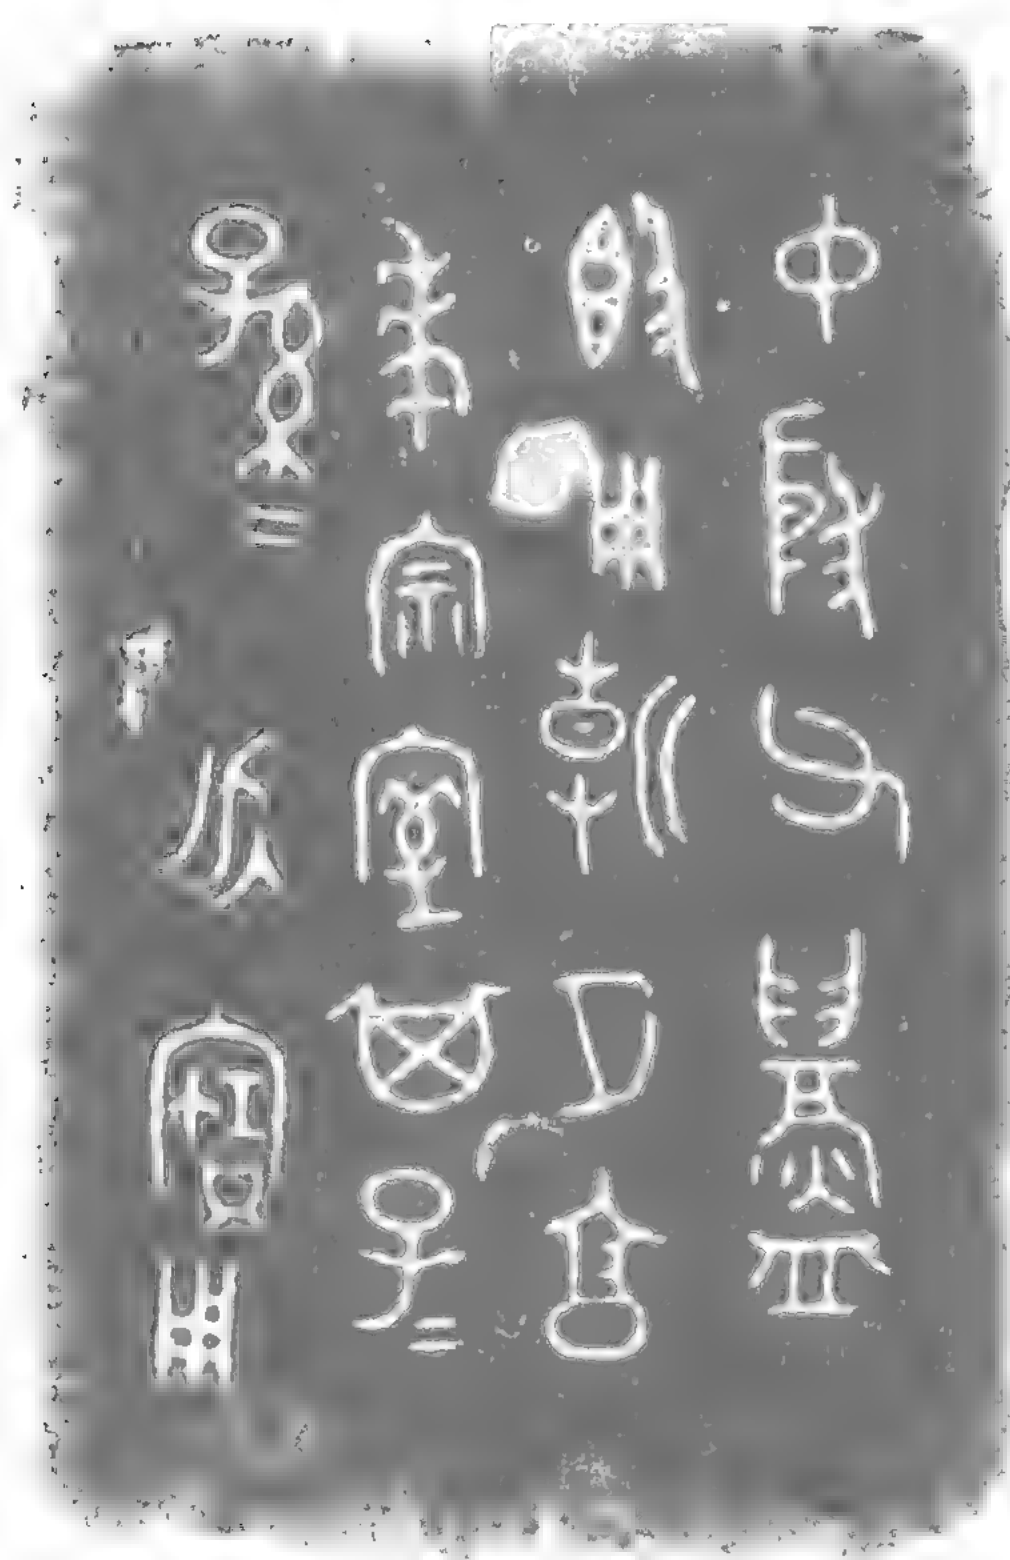 中殷父鑄
𣪘用朝夕享
孝宗室其子=
孫=永寶用